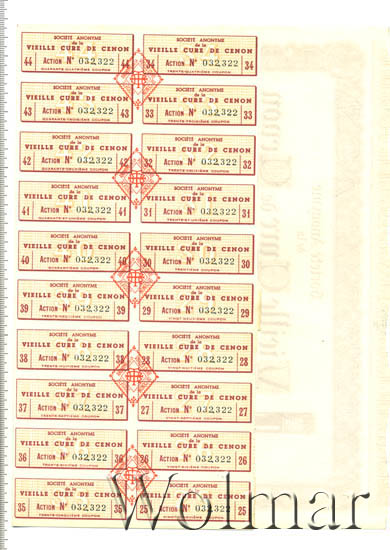 SOCIÉTÉ ANONYME
de la
VIEILLE CURE DE CENON
44 ACTION N° 032,322 44
QUARANTE-QUATRIÈME COUPON
SOCIÉTÉ ANONYME
de la
VIEILLE CURE DE CENON
34 ACTION N° 032,322 34
TRENTE-QUATRIÈME COUPON
SOCIÉTÉ ANONYME
de la
VIEILLE CURE DE CENON
43 ACTION N° 032,322 43
QUARANTE-TROISIÈME COUPON
SOCIÉTÉ ANONYME
de la
VIEILLE CURE DE CENON
33 ACTION N° 032,322 33
TRENTE-TROISIÈME COUPON
SOCIÉTÉ ANONYME
de la
VIEILLE CURE DE CENON
42 ACTION N° 032,322 42
QUARANTE-DEUXIÈME COUPON
SOCIÉTÉ ANONYME
de la
VIEILLE CURE DE CENON
32 ACTION N° 032,322 32
TRENTE-DEUXIÈME COUPON
SOCIÉTÉ ANONYME
de la
VIEILLE CURE DE CENON
41 ACTION N° 032,322 41
QUARANTE-ET-UNIÈME COUPON
SOCIÉTÉ ANONYME
de la
VIEILLE CURE DE CENON
31 ACTION N° 032,322 31
TRENTE-ET-UNIÈME COUPON
SOCIÉTÉ ANONYME
de la
VIEILLE CURE DE CENON
40 ACTION N° 032,322 40
QUARANTIÈME COUPON
SOCIÉTÉ ANONYME
de la
VIEILLE CURE DE CENON
30 ACTION N° 032,322 30
TRENTIÈME COUPON
SOCIÉTÉ ANONYME
de la
VIEILLE CURE DE CENON
39 ACTION N° 032,322 39
TRENTE-NEUVIÈME COUPON
SOCIÉTÉ ANONYME
de la
VIEILLE CURE DE CENON
29 ACTION N° 032,322 29
VINGT-NEUVIÈME COUPON
SOCIÉTÉ ANONYME
de la
VIEILLE CURE DE CENON
38 ACTION N° 032,322 38
TRENTE-HUITIÈME COUPON
SOCIÉTÉ ANONYME
de la
VIEILLE CURE DE CENON
28 ACTION N° 032,322 28
VINGT-HUITIÈME COUPON
SOCIÉTÉ ANONYME
de la
VIEILLE CURE DE CENON
37 ACTION N° 032,322 37
TRENTE-SEPTIÈME COUPON
SOCIÉTÉ ANONYME
de la
VIEILLE CURE DE CENON
27 ACTION N° 032,322 27
VINGT-SEPTIÈME COUPON
SOCIÉTÉ ANONYME
de la
VIEILLE CURE DE CENON
36 ACTION N° 032,322 36
TRENTE-SIXIÈME COUPON
SOCIÉTÉ ANONYME
de la
VIEILLE CURE DE CENON
26 ACTION N° 032,322 26
VINGT-SIXIÈME COUPON
SOCIÉTÉ ANONYME
de la
VIEILLE CURE DE CENON
35 ACTION N° 032,322 35
TRENTE-CINQUIÈME COUPON
SOCIÉTÉ ANONYME
de la
VIEILLE CURE DE CENON
25 ACTION N° 032,322 25
Wolmar